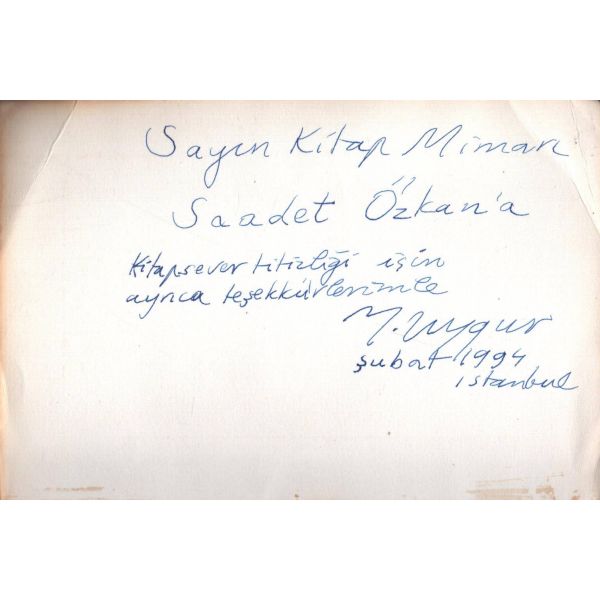 Sayın Kitap Mimarı
Saadet Özkan'a
Kitapsever titizliği için
ayrıca teşekkürlerimle
N. Uygur
şubat 1994
istanbul